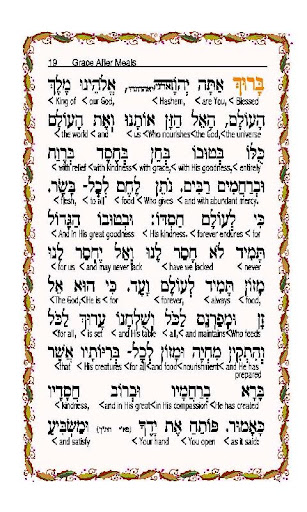 19 Grace After Meals
בָּרוּךְ אַתָּה יְהוָה אֱלֹהֵינוּ מֶלֶךְ
< King of < our God, < Hashem, < are You, < Blessed
הָעוֹלָם, הָאֵל הַזָּן אוֹתָנוּ וְאֶת הָעוֹלָם
< the world < and < us <Who nourishes <the God, <the universe
כֻּלּוֹ בְּטוּבוֹ בְּחֵן בְּחֶסֶד בְּרֶוַח
< with relief <with kindness < with grace, < with His goodness, < entirely
וּבְרַחֲמִים רַבִּים. נֹתֵן לֶחֶם לְכָל- בָּשָׂר.
< flesh, < to all < food < Who gives < and with abundant mercy.
כִּי לְעוֹלָם חַסְדּוֹ: וּבְטוּבוֹ הַגָּדוֹל
< And in His great goodness < His kindness. < forever endures < for
תָּמִיד לֹא חָסַר לָנוּ וְאַל יֶחְסַר לָנוּ
< for us < and may never lack < have we lacked < never
מָזוֹן תָּמִיד לְעוֹלָם וָעֶד. כִּי הוּא אֵל
<The God, <He is < for < forever, < always < food,
זָן וּמְפַרְנֵס לַכֹּל וְשֻׁלְחָנוֹ עָרוּךְ לַכֹּל
<for all, < is set < and His table < all, < and maintains <Who feeds
וְהִתְקִין מִחְיָה וּמָזוֹן לְכָל- בְּרִיּוֹתָיו אֲשֶׁר
<that < His creatures < for all <and food <nourishment < and He has prepared
בָּרָא בְרַחֲמָיו וּבְרוֹב חֲסָדָיו
< kindness, <and in His great <in His compassion <He has created
כָּאָמוּר. פּוֹתֵחַ אֶת יָדֶךָ וּמַשְׂבִּיעַ
< and satisfy < Your hand < You open < as it said: